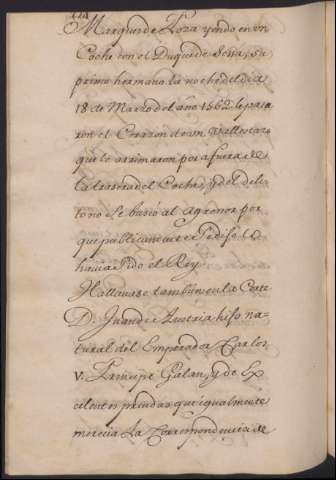 Marques de Poza yendo en un
Coche con el Duque de Sessa, su
primo hermano la noche del dia
18 de Marzo del año 1562 le pasa
ron el Corazon de un Vallestazo
que le arrimaron por afuera de
la trasera del Coche, y del deli
to no se buscó al Agresor por
que publicamente se dijo lo
havia sido el Rey.
Hallavase tambien en la Corte
D. Juan de Austria hijo na=
tural del Emperador Carlos
V. Principe Galan, y de Ex
celentes prendas que igualmente
merecia la Correspondencia de